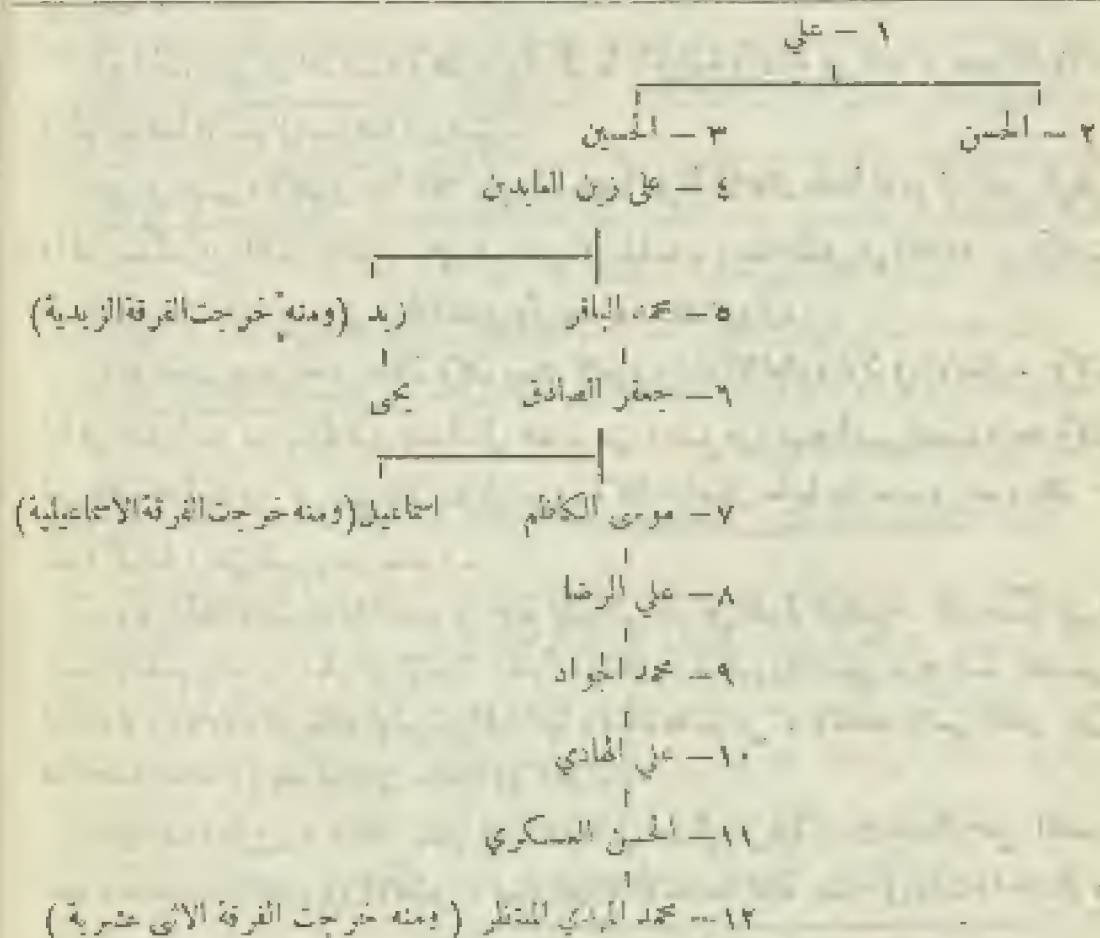 ١ — علي
٢ — الحسن ٣ — الحسين
٤ — علي زين العابدين
٥ — محمد الباقر زيد (ومنه خرجت الفرقة الزيدية)
٦ — جعفر الصادق يحيى
٧ — موسى الكاظم اسماعيل (ومنه خرجت الفرقة الاسماعيلية)
٨ — علي الرضا
٩ — محمد الجواد
١٠ — علي الهادي
١١ — الحسن العسكري
١٢ — محمد المهدي المنتظر ( ومنه خرجت الفرقة الاثني عشرية )